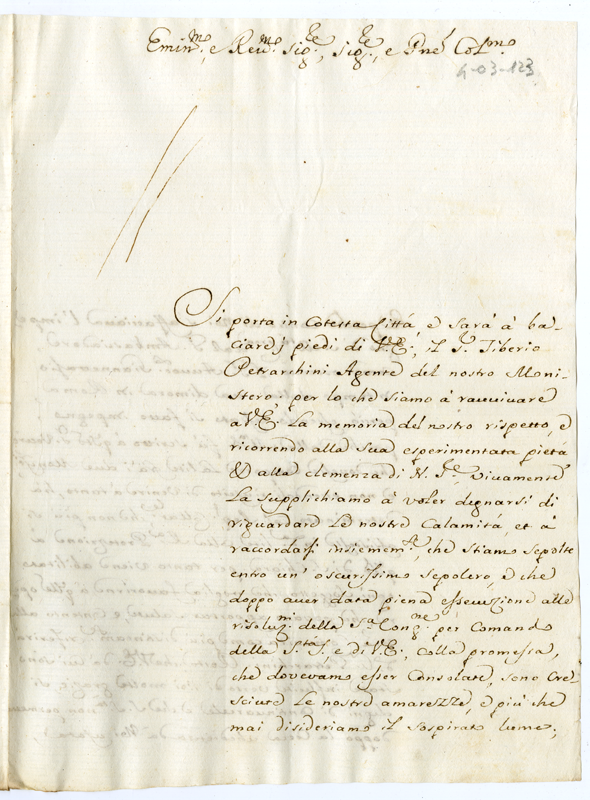 Emin.mo, e Rev.mo Sig.re, Sig.re, e Pne Col.mo
4-03-123
Si porta in Cotesta Città, e sarà à ba-
ciare j piedi di V.E., il S.r Tiberio
Petrarchini Agente del nostro Moni-
stero, per lo che siamo à ravvivare
a V.E. La memoria del nostro rispetto, e
ricorrendo alla sua esperimentata pietà
& alla clemenza di N. S.re Vivamente
La supplichiamo à voler degnarsi di
riguardare Le nostre Calamità, et à
raccordarsi insiemem.te, che stiamo sepolte
entro un' oscurissimo sepolcro, e che
doppo aver data piena essecuzione alle
risoluz.ni della S.a Cong.ne per Comando
della S.tà S., e di V.E., colla promessa,
che dovevamo esser Consolate, sono Cre
sciute Le nostre amarezze, e più che
mai disideriamo il sospirato lume;